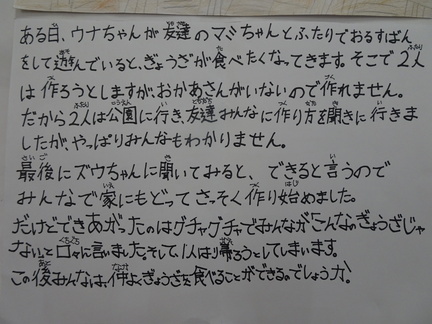 ある日、ウナちゃんが友達のマミちゃんとふたりでおるすばん
をして遊んでいると、ぎょうざが食べたくなってきます。そこで2人
は作ろうとしますが、おかあさんがいないので作れません。
だから2人は公園に行き、友達みんなに作り方を聞きに行きま
したが、やっぱりみんなもわかりません。
最後にズウちゃんに聞いてみると、できると言うので
みんなで家にもどってさっそく作り始めました。
だけどできあがったのはグチャグチャでみんなが「こんなのぎょうざじゃ
ない」と口々に言いました。そして、1人は帰ろうとしてしまいます。
この後みんなは、仲よくぎょうざを食べることができるのでしょうか。